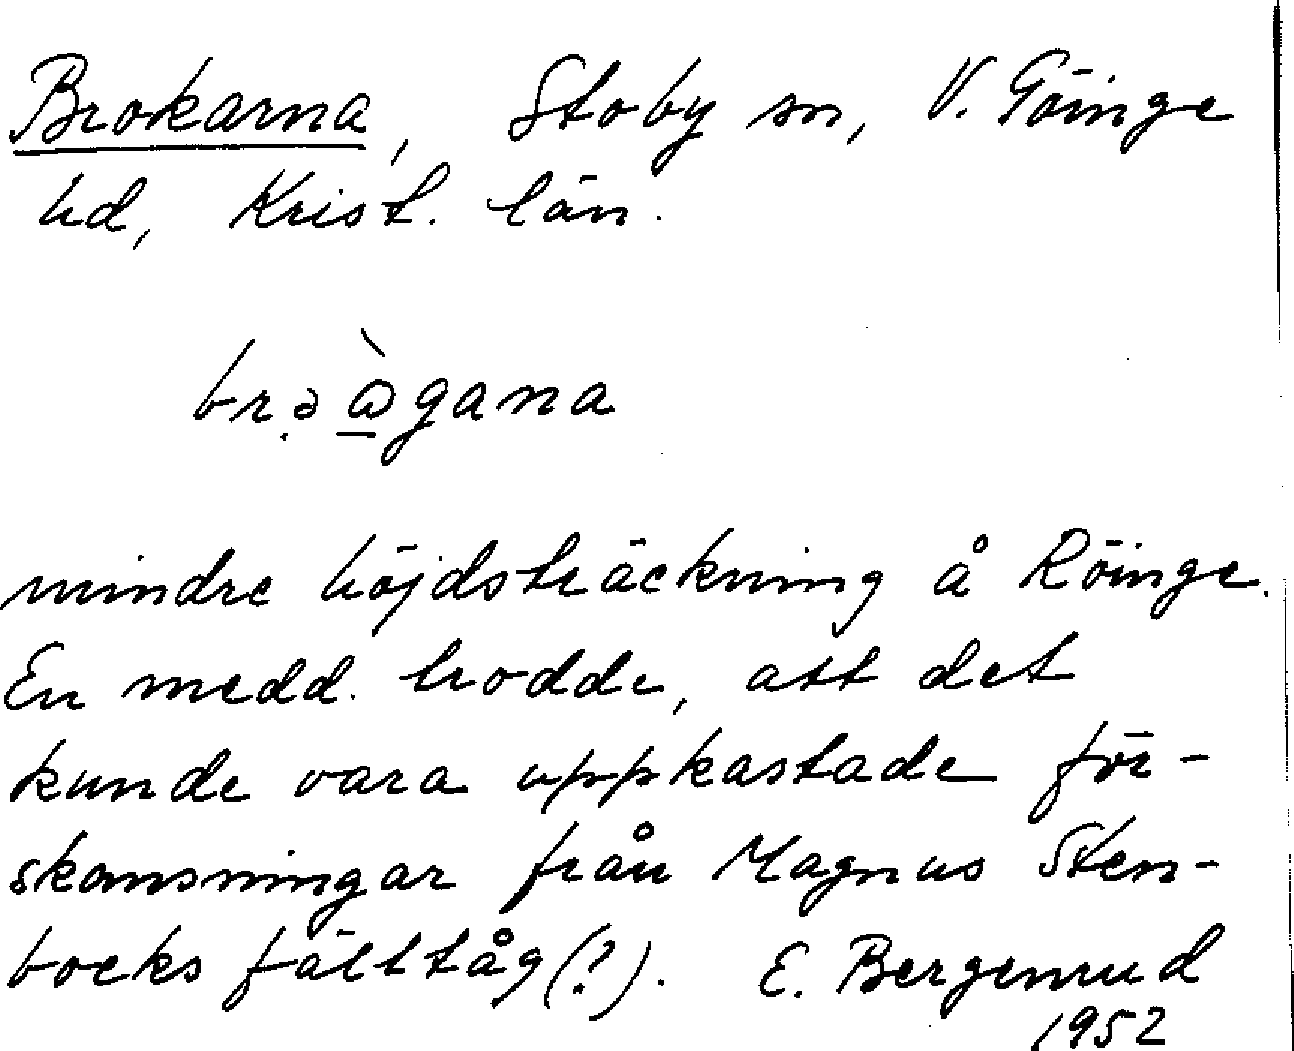 Brokarna, Stoby sn, V. Göinge
hd, Krist. län.
brə̣ὼ̲gana
mindre höjdsträckning å Röinge.
En medd. trodde, att det
kunde vara uppkastade för-
skansningar från Magnus Sten-
bocks fälttåg(?). E. Bergenrud
1952